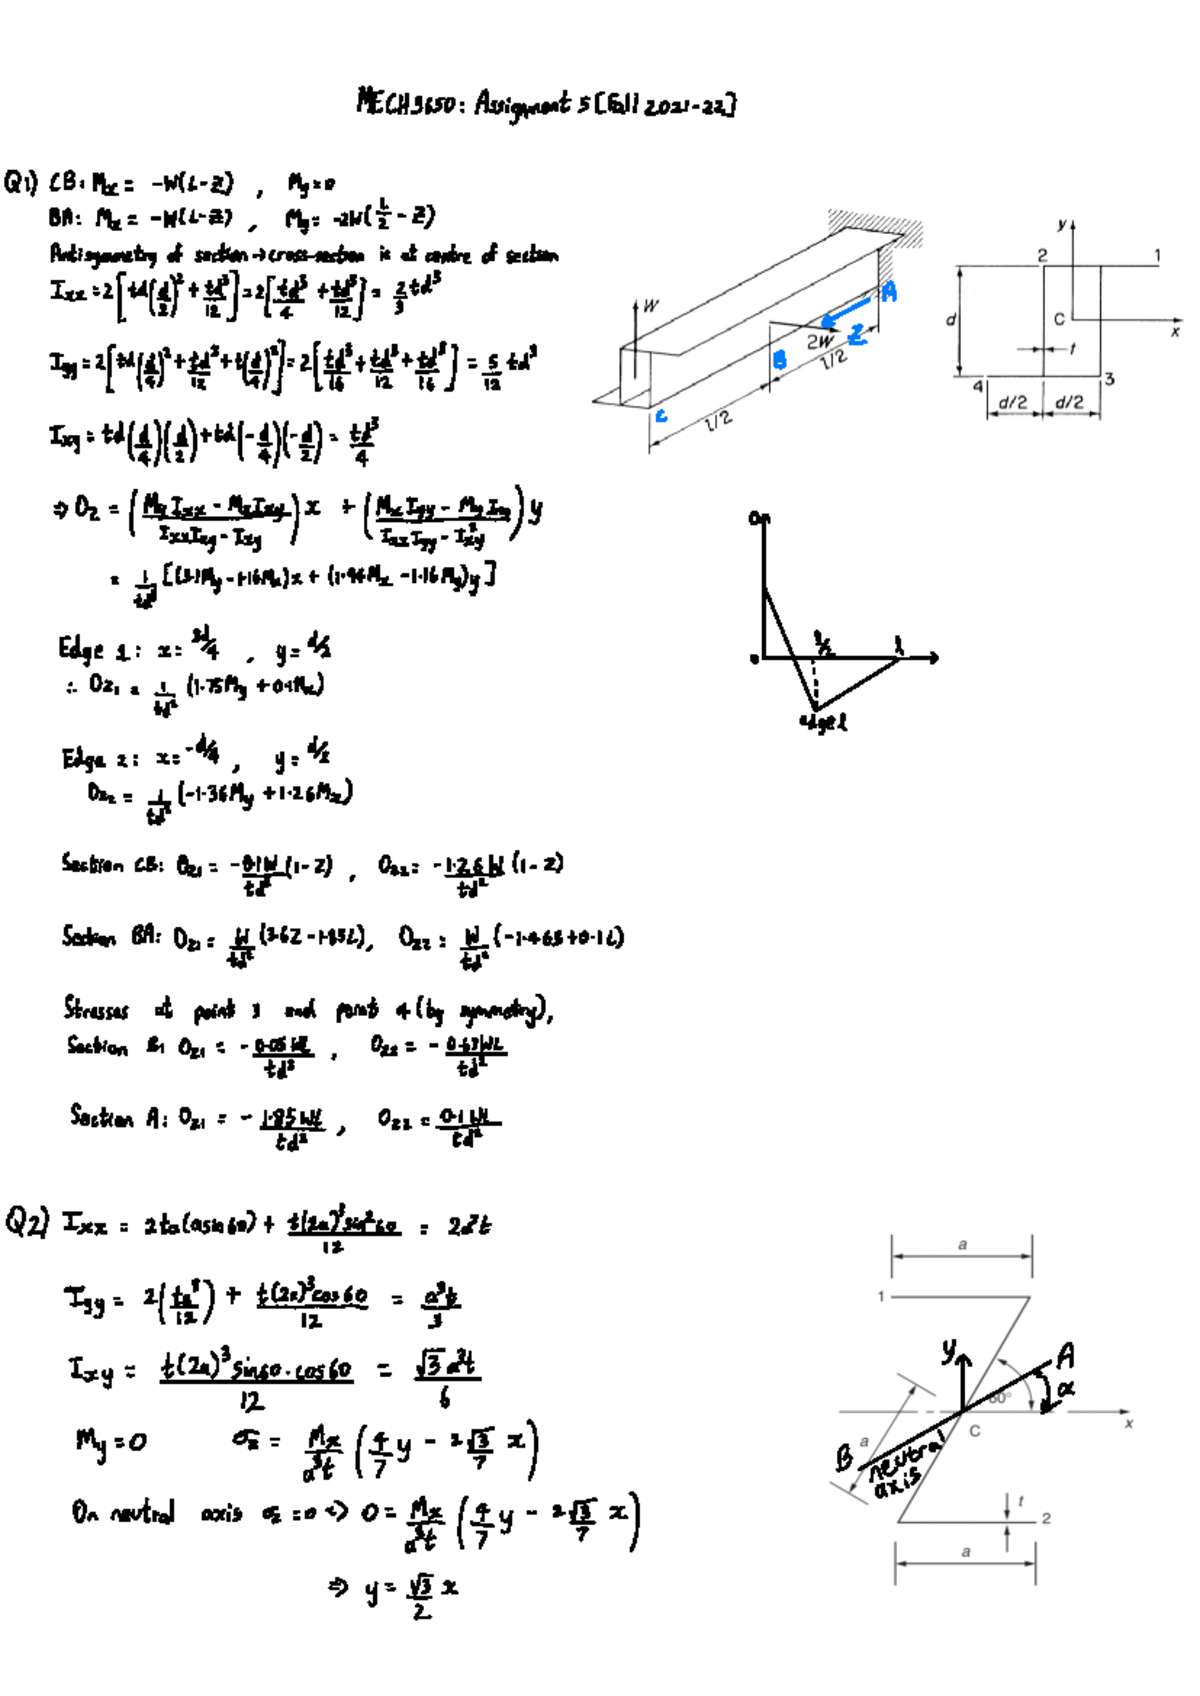 MECH3650: Assignment 5 [Fall 2021-22]
Q1) CB: Mx = -W(L-Z) , My=0
BA: Mx = -W(L-Z) , My = -2W(L/2 - Z)
Antisymmetry of section → cross-section is at centre of section
Ixx = 2[td(d/2)² + td³/12] = 2[td³/4 + td³/12] = 2/3 td³
Iyy = 2[td(d/4)² + td³/12 + t(d/4)²] = 2[td³/16 + td³/12 + td³/16] = 5/12 td³
Ixy = td(d/4)(d/2) + td(-d/4)(-d/2) = td³/4
⇒ σz = ((My Ixx - Mx Ixy)/(Ixx Iyy - Ixy))x + ((Mx Iyy - My Ixy)/(Ixx Iyy - Ixy²))y
= 1/td³ [(3.1My - 1.16Mx)x + (1.94Mx - 1.16My)y]
Edge 1: x = 3d/4 , y = d/2
∴ σz1 = 1/td² (1.75My + 0.1Mx)
Edge 2: x = -d/4 , y = d/2
σz2 = 1/td² (-1.36My + 1.26Mx)
Section CB: σz1 = -0.1W/td² (l-Z) , σz2 = -1.26W/td² (l-Z)
Section BA: σz1 = W/td² (3.6Z - 1.85L), σz2 = W/td² (-1.46Z + 0.1L)
Stresses at point 3 and point 4 (by symmetry),
Section B: σz1 = -0.05WL/td² , σz2 = -0.63WL/td²
Section A: σz1 = -1.85Wl/td² , σz2 = 0.1Wl/td²
W
2W
A
Z
B
C
l/2
l/2
y
2
1
d
C
x
t
4
3
d/2
d/2
0
l/2
l
edge 1
Q2) Ixx = 2ta(asin60) + t(2a)³sin²60/12 = 2a³t
Iyy = 2(ta³/12) + t(2a)³cos60/12 = a³t/3
Ixy = t(2a)³sin60.cos60/12 = √3a³t/6
My = 0 σz = Mx/a³t (4/7 y - 2√3/7 x)
On neutral axis σz = 0 ⇒ 0 = Mx/a³t (4/7 y - 2√3/7 x)
⇒ y = √3/2 x
a
1
y
A
60°
α
x
C
a
B
neutral
axis
t
2
a